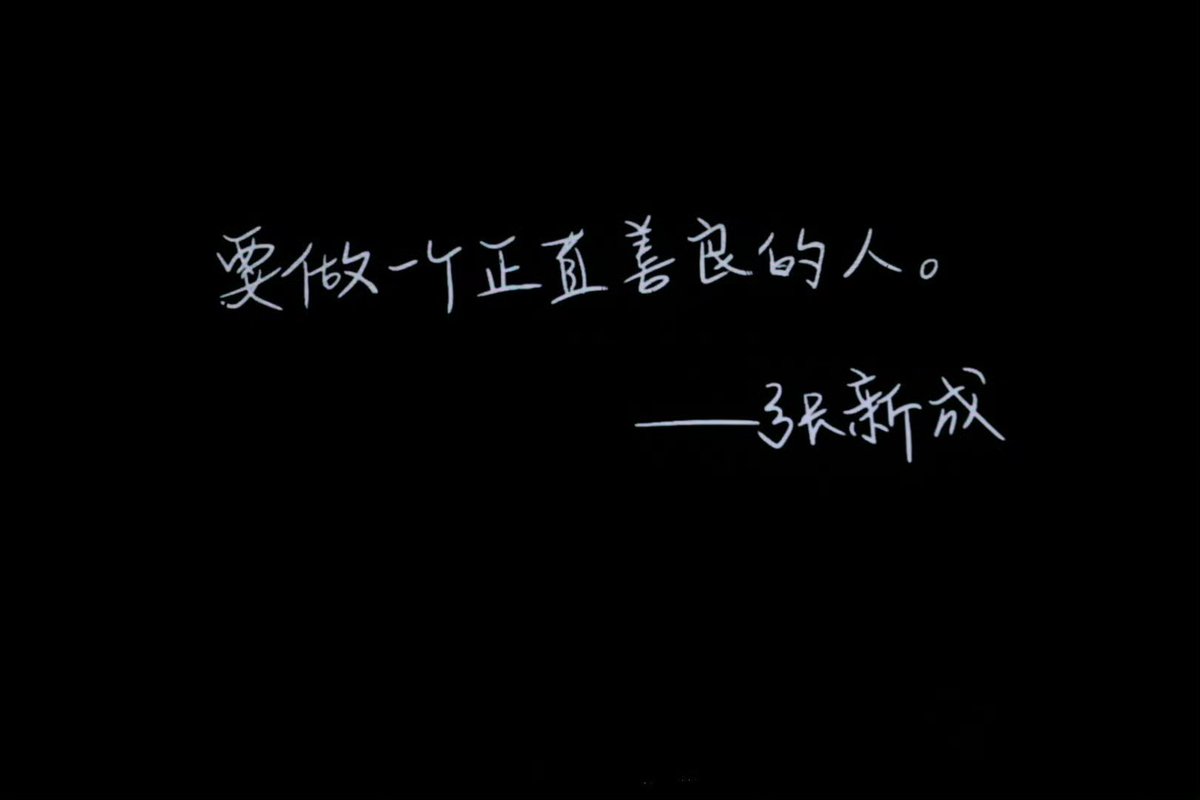 要做一个正直善良的人。
——张新成